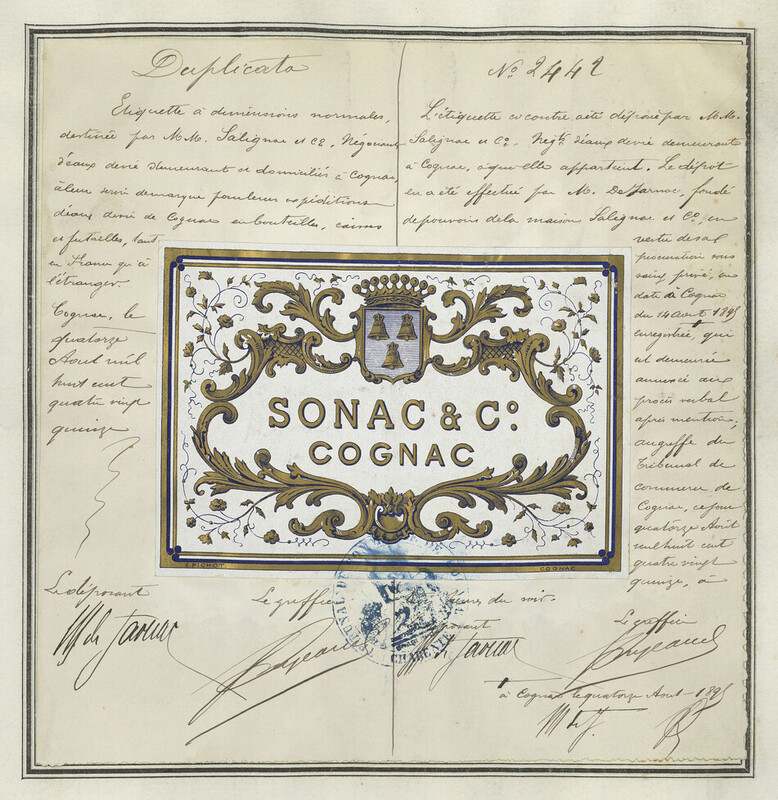 Duplicata
Etiquette à dimensions normales,
destinée par M.M. Salignac et Cie, Négociants
d'eaux devie demeurant et domiciliés à Cognac,
à leur servir de marque pour leurs expéditions
d'eaux devie de Cognac en bouteilles, caisses
et futailles, tant
en France qu'à
l'étranger.
Cognac, le
quatorze
Aout mil
huit cent
quatre vingt
quinze
Le déposant
Le greffier
No 2442
L'étiquette ci contre a été déposée par M.M.
Salignac et Co. Négts d'eaux devie demeurant
à Cognac, à qui elle appartient. Le dépôt
en a été effectué par M. De Jarnac, fondé
de pouvoirs de la maison Salignac et Co, en
vertu de sa
procuration sous
seing privé, en
date à Cognac
du 14 Aout 1895
enregistrée, qui
est demeurée
annexée au
procès verbal
après mention;
au greffe du
Tribunal de
commerce de
Cognac, ce jour
quatorze Aout
mil huit cent
quatre vingt
quinze, à
heures du soir.
Le déposant
Le greffier
à Cognac le quatorze Aout 1895
SONAC & Co.
COGNAC
E. PICHOT
COGNAC
CHARENTE